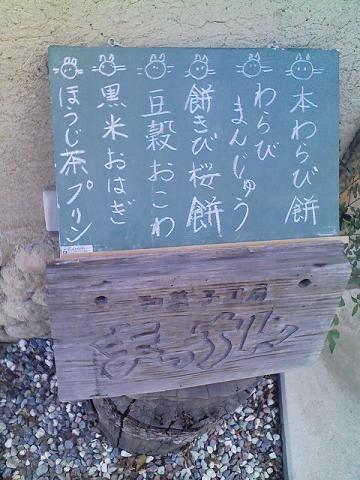 本わらび餅
わらび
まんじゅう
餅きび桜餅
豆穀おこわ
黒米おはぎ
ほうじ茶プリン
和菓子工房